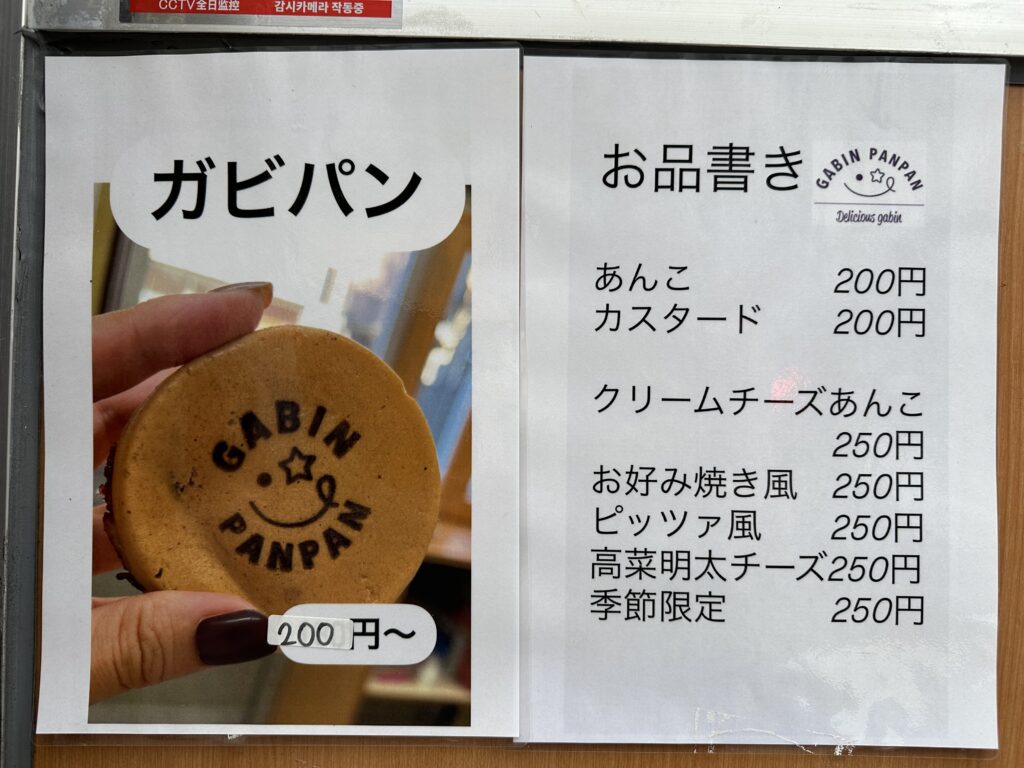 CCTV全日监控 감시카메라 작동중
ガビパン
GABIN
PANPAN
200円～
お品書き
GABIN PANPAN
Delicious gabin
あんこ 200円
カスタード 200円
クリームチーズあんこ
250円
お好み焼き風 250円
ピッツァ風 250円
高菜明太チーズ250円
季節限定 250円